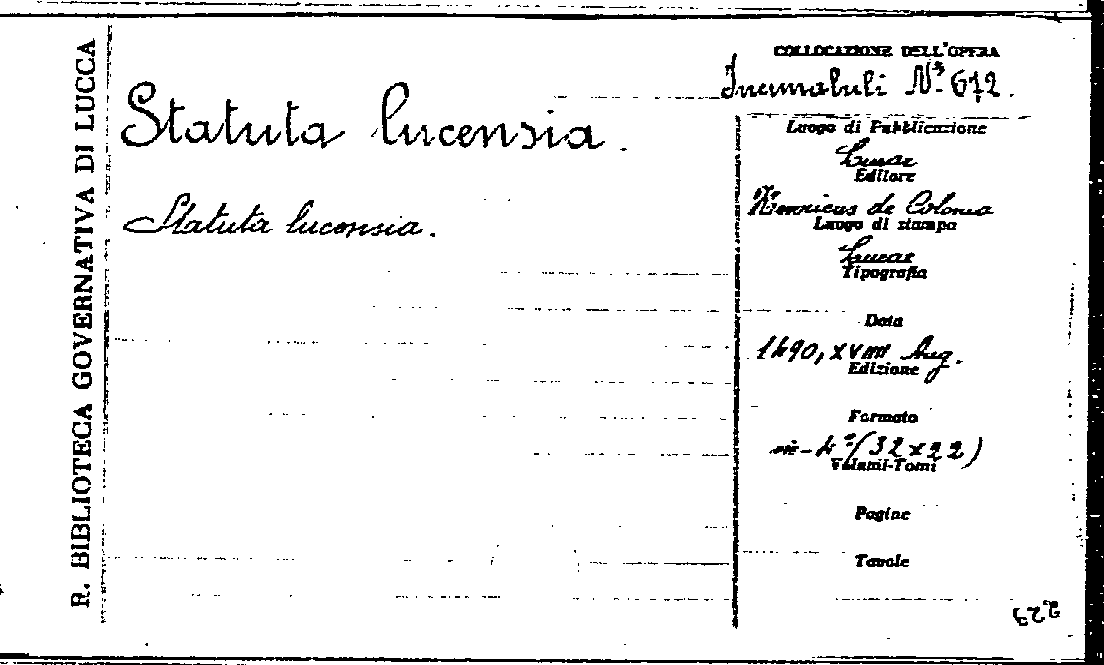 R. BIBLIOTECA GOVERNATIVA DI LUCCA
Statuta lucensia.
Statuta lucensia.
COLLOCAZIONE DELL'OPERA
Incunaboli N° 672.
Luogo di Pubblicazione
Lucae
Editore
Henricus de Colonia
Luogo di stampa
Lucae
Tipografia
Data
1490, XVIII Aug.
Edizione
Formato
in-4°(32x22)
Volumi-Tomi
Pagine
Tavole